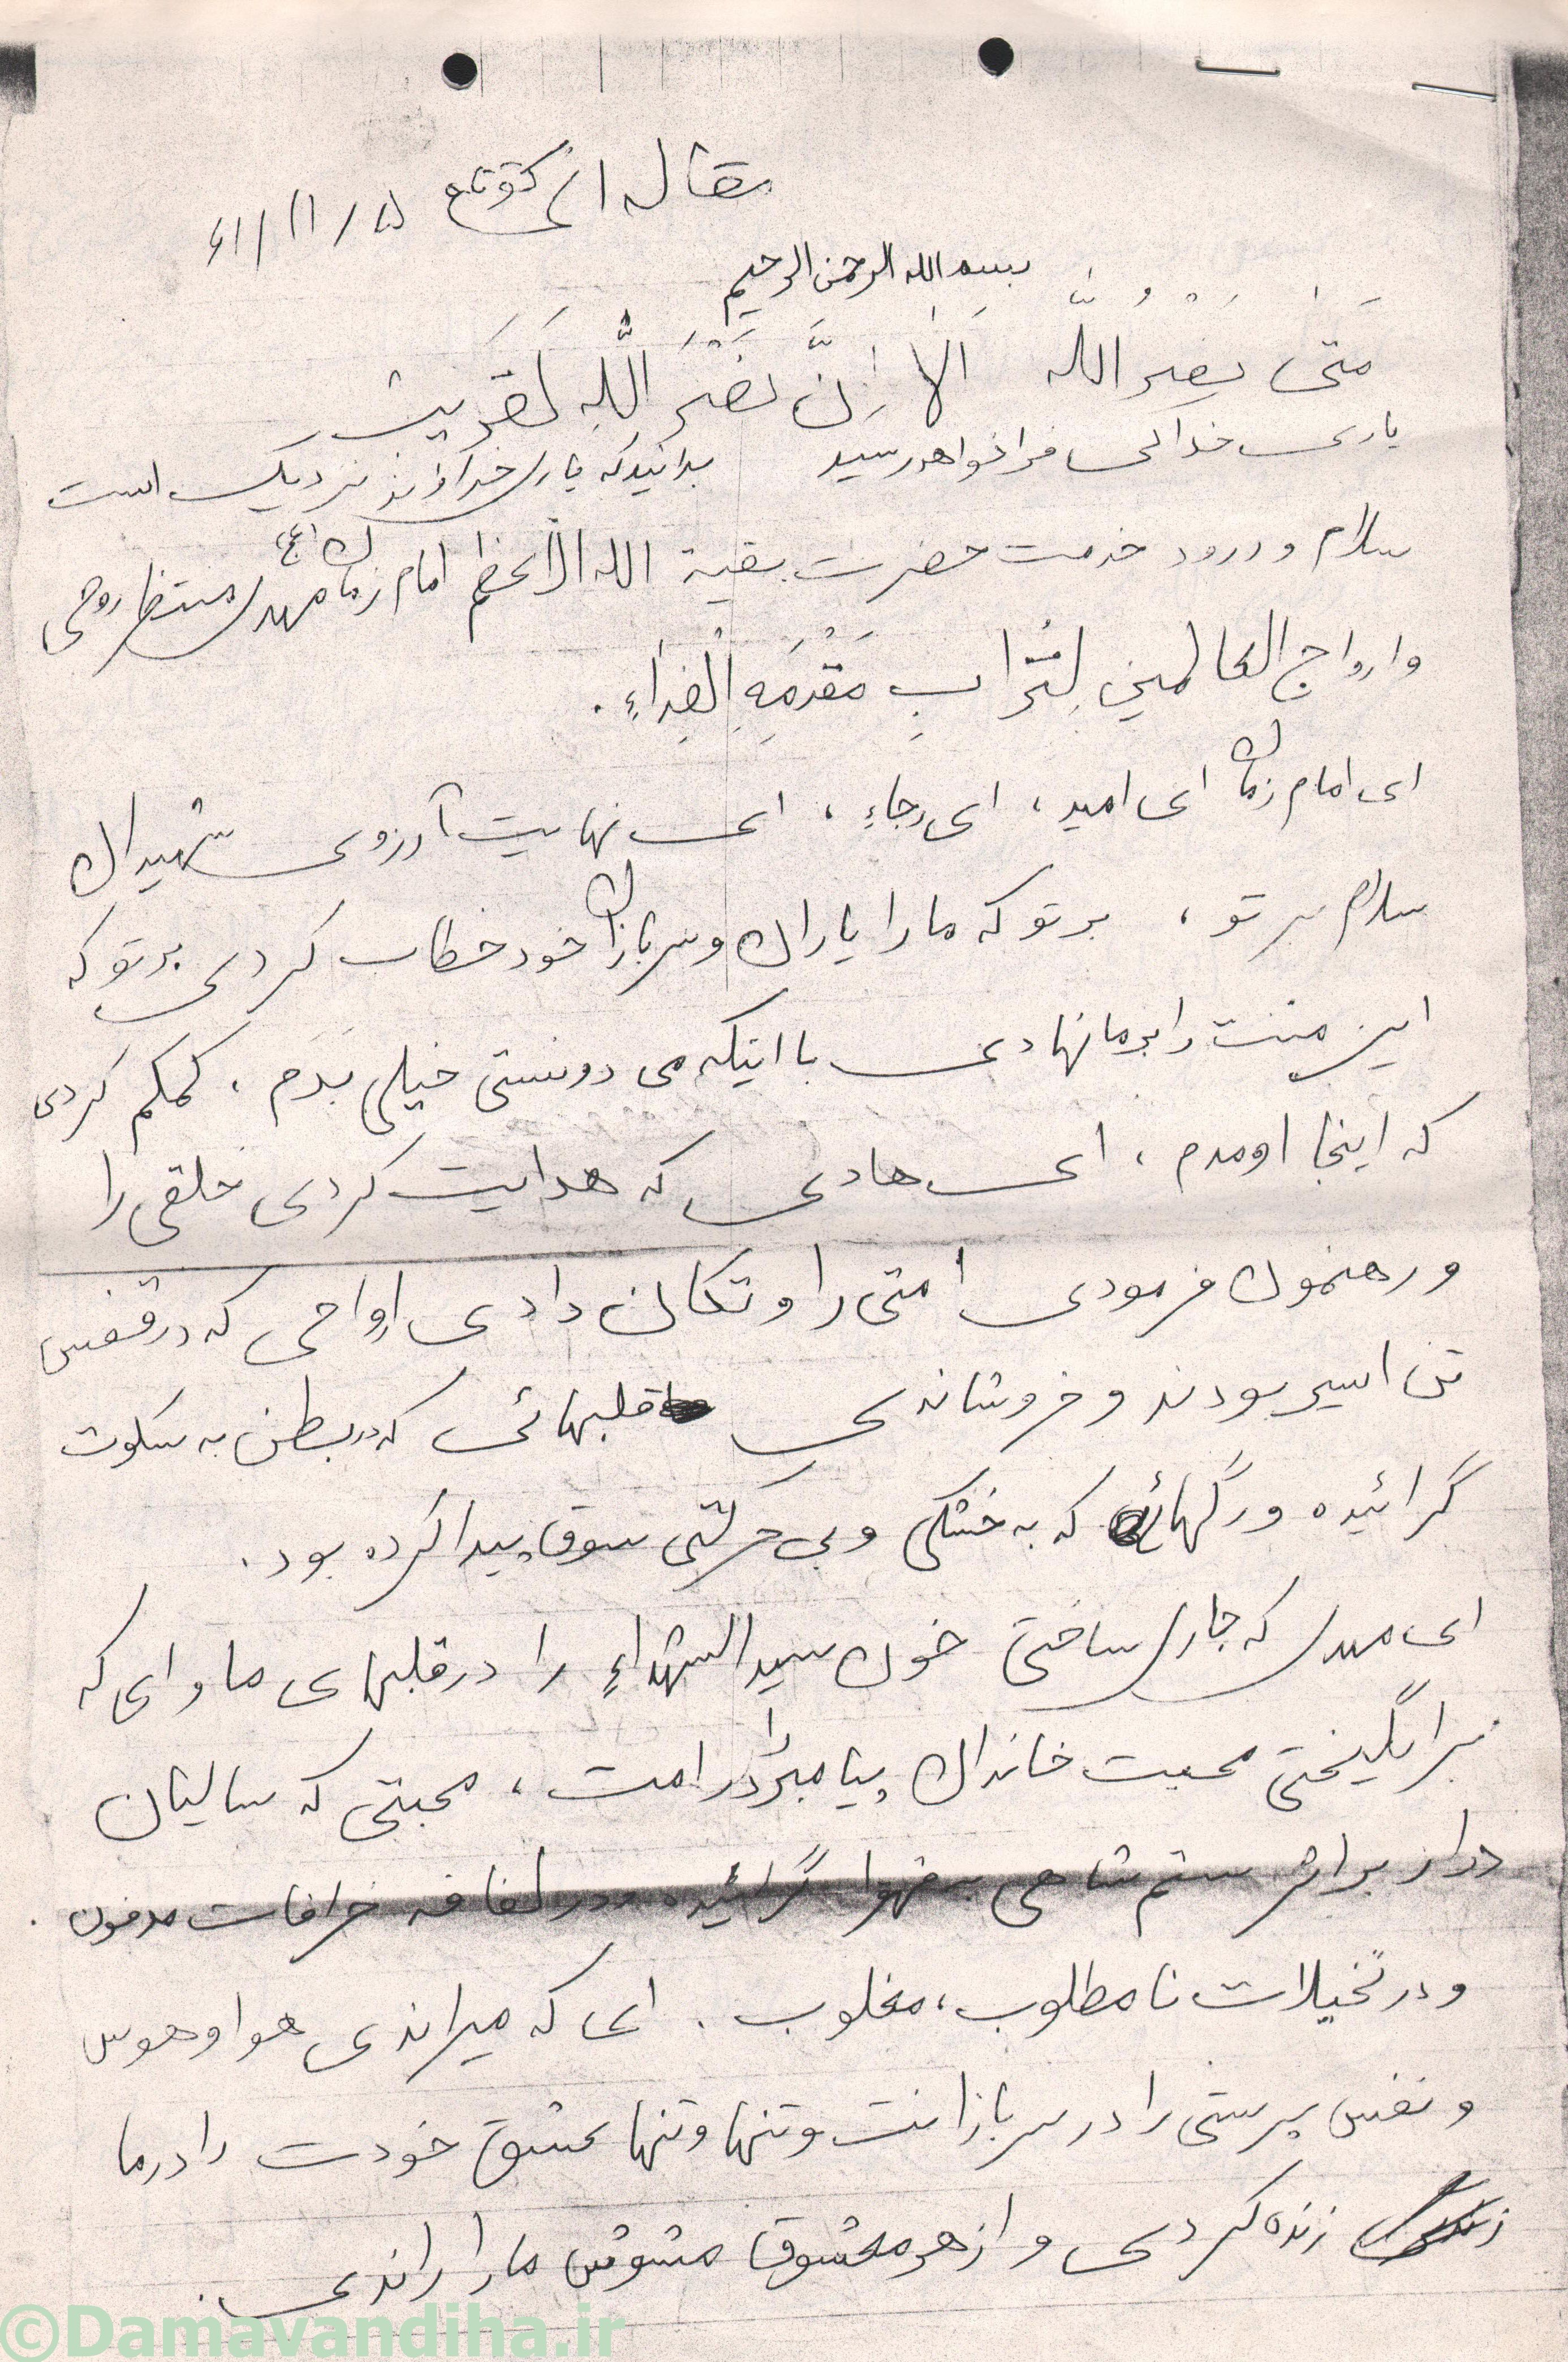 مقاله ای کوتاه ۶۱/۱۱/۵
بسم الله الرحمن الرحیم
مَتىٰ نَصْرُ اللّٰه اَلاٰ اِنَّ نَصْرَ اللّٰهِ لَقَریب
یاری خدا کی فرا خواهد رسید بدانید که یاری خداوند نزدیک است
سلام و درود خدمت حضرت بقیة الله الاعظم امام زمان مهدی منتظر (عج) روحی
و ارواح العالمین لِتُرابِ مَقْدَمِهِ الْفِداءِ .
ای امام زمان ای امید ، ای رجاءِ ، ای نهایت آرزوی شهیدان
سلام بر تو ، بر تو که ما را یاران و سربازان خود خطاب کردی بر تو که
این منت را بر ما نهادی با اینکه می دونستی خیلی بَدَم ، کمکم کَردی
که اینجا اومدم ، ای هادی که هدایت کردی خلقی را
و رهنمون فرمودی امتی را و تکان دادی ارواحی که در قفس
تن اسیر بودند و خروشاندی قلبهائی که در بطن به سکوت
گرائیده و رگهائی که به خشکی و بی حرکتی سوق پیدا کرده بود .
ای مهدی که جاری ساختی خون سید الشهداءِ را در قلبهای ما و ای که
برانگیختی محبت خاندان پیامبر را در امت ، محبتی که سالیان
دراز بر اثر ستم شاهی به قهقرا گرائیده و در لفافه خرافات مدفون .
و در تخیلات نامطلوب ، مغلوب . ای که میراندی هوا و هوس
و نفس پرستی را در سربازانت و تنها و تنها عشق خودت را در ما
زنده کردی و از هر معشوق مشوش ما را راندی .
©Damavandiha.ir